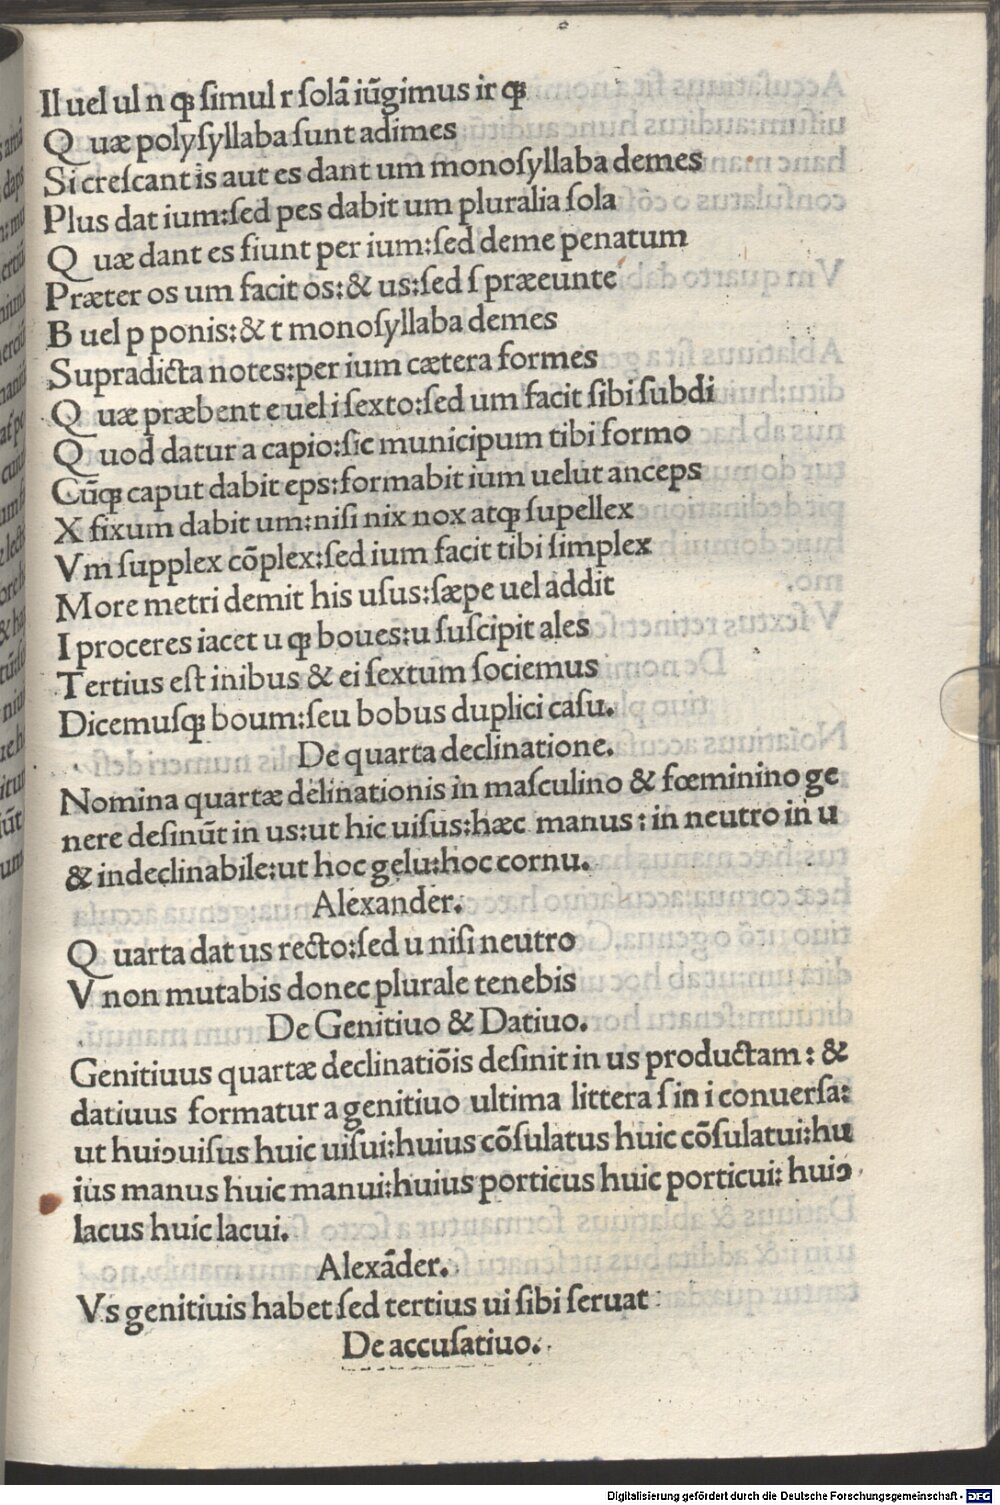 Il uel ul n qꝫ ſimul r ſolã iũgimus ir qꝫ
Q uæ polyſyllaba ſunt adimes
Si creſcant is aut es dant um monoſyllaba demes
Plus dat ium:ſed pes dabit um pluralia ſola
Q uæ dant es fiunt per ium:ſed deme penatum
Præter os um facit os:& us:ſed ſ præeunte
B uel p ponis:& t monoſyllaba demes
Supradicta notes:per ium cætera formes
Q uæ præbent e uel i ſexto:ſed um facit ſibi ſubdi
Q uod datur a capio:ſic municipum tibi formo
Cũqꝫ caput dabit eps:formabit ium uelut anceps
X fixum dabit um:niſi nix nox atqꝫ ſupellex
Vm ſupplex cõplex:ſed ium facit tibi ſimplex
More metri demit his uſus:ſæpe uel addit
I proceres iacet u qꝫ boues:u ſuſcipit ales
Tertius eſt inibus & ei ſextum ſociemus
Dicemuſqꝫ boum:ſeu bobus duplici caſu.
De quarta declinatione.
Nomina quartæ delinationis in maſculino & fœminino ge
nere deſinũt in us:ut hic uiſus:hæc manus : in neutro in u
& indeclinabile:ut hoc gelu:hoc cornu.
Alexander.
Q uarta dat us recto:ſed u niſi neutro
V non mutabis donec plurale tenebis
De Genitiuo & Datiuo.
Genitiuus quartæ declinatiõis deſinit in us productam : &
datiuus formatur a genitiuo ultima littera ſ in i conuerſa:
ut huiꝰuiſus huic uiſui:huius cõſulatus huic cõſulatui:hu
ius manus huic manui:huius porticus huic porticui: huiꝰ
lacus huic lacui.
Alexãder.
Vs genitiuis habet ſed tertius ui ſibi ſeruat
De accuſatiuo.
Digitalisierung gefördert durch die Deutsche Forschungsgemeinschaft - DFG